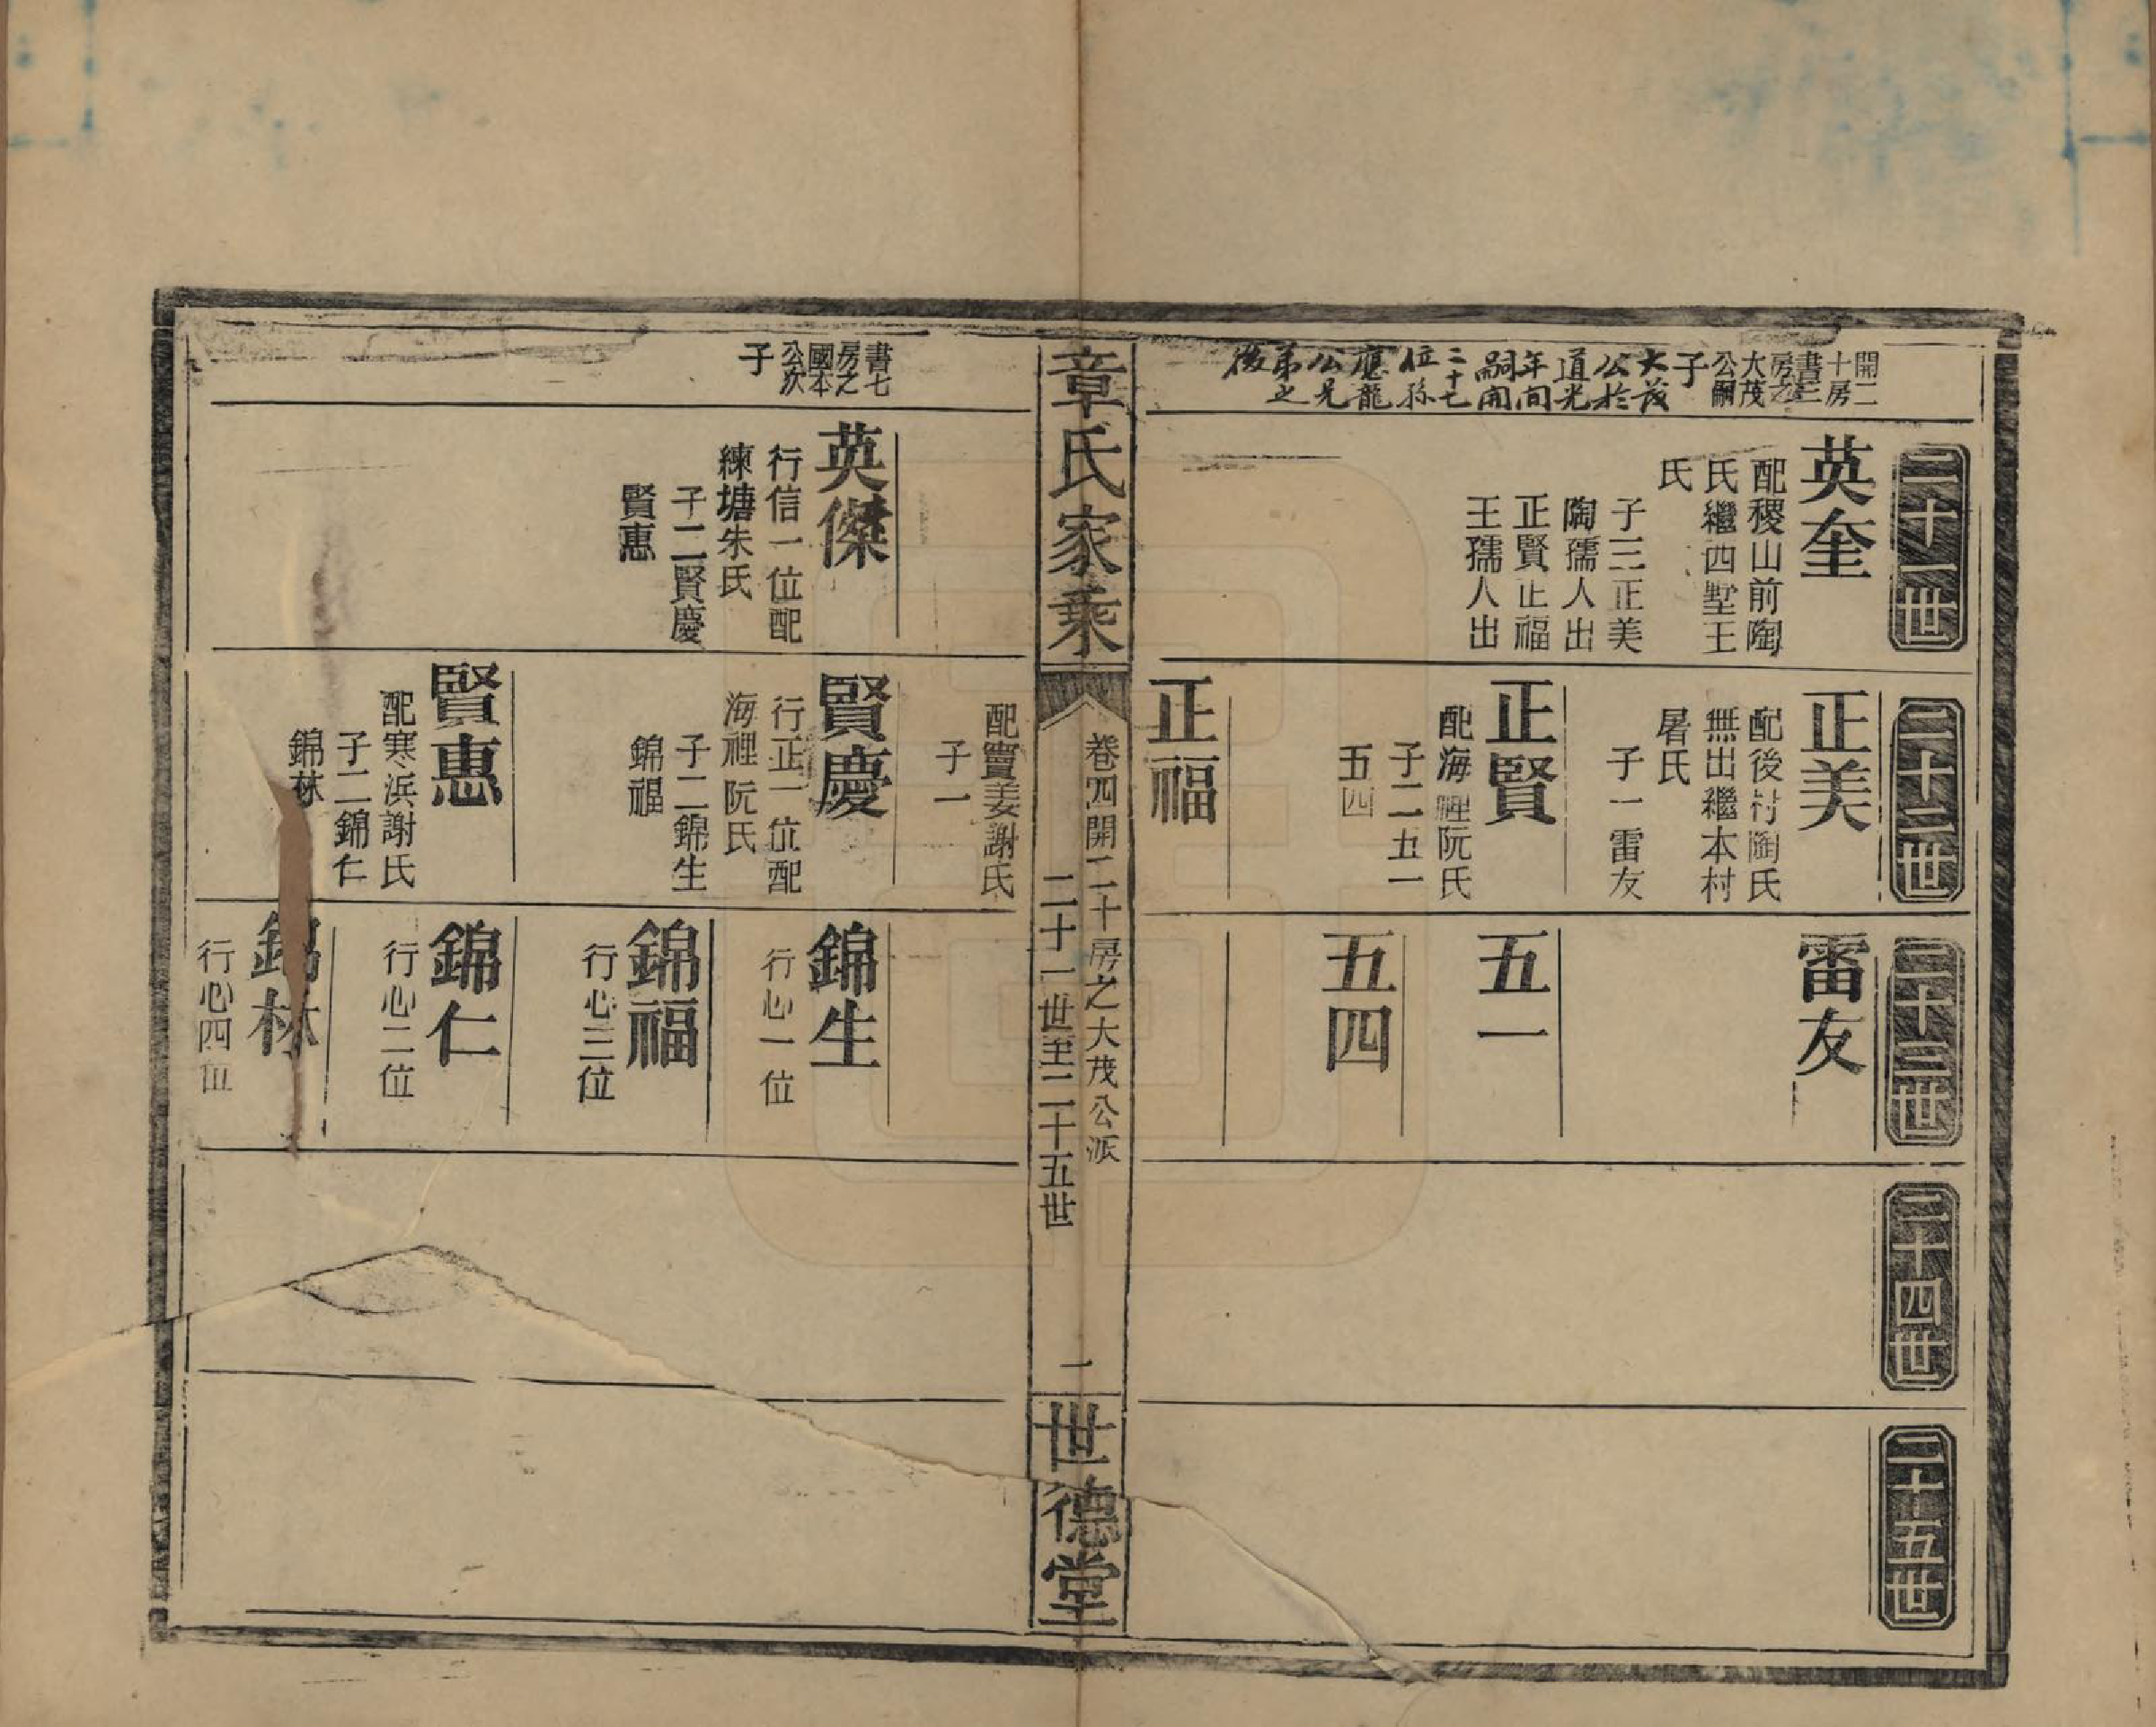 開二
十房
書三
房之
大茂
公嗣
子
大茂
公於
道光
年間
嗣開
二十七
位孫
應龍
公兄
弟之
後
二十一世
英奎
配稷山前陶
氏繼西墅王
氏
子三正美
陶孺人出
正賢正福
王孺人出
二十二世
正美
配後村陶氏
無出繼本村
屠氏
子一雷友
正賢
配海裡阮氏
子二五一
五四
正福
二十三世
雷友
五一
五四
二十四世
二十五世
章氏家乘
卷四開二十房之大茂公派
二十一世至二十五世
一
世德堂
書七
房之
國本
公次
子
英傑
行信一位配
練塘朱氏
子二賢慶
賢惠
配竇姜謝氏
子一
賢慶
行正一位配
海裡阮氏
子二錦生
錦福
賢惠
配寒浜謝氏
子二錦仁
錦林
錦生
行心一位
錦福
行心三位
錦仁
行心二位
錦林
行心四位